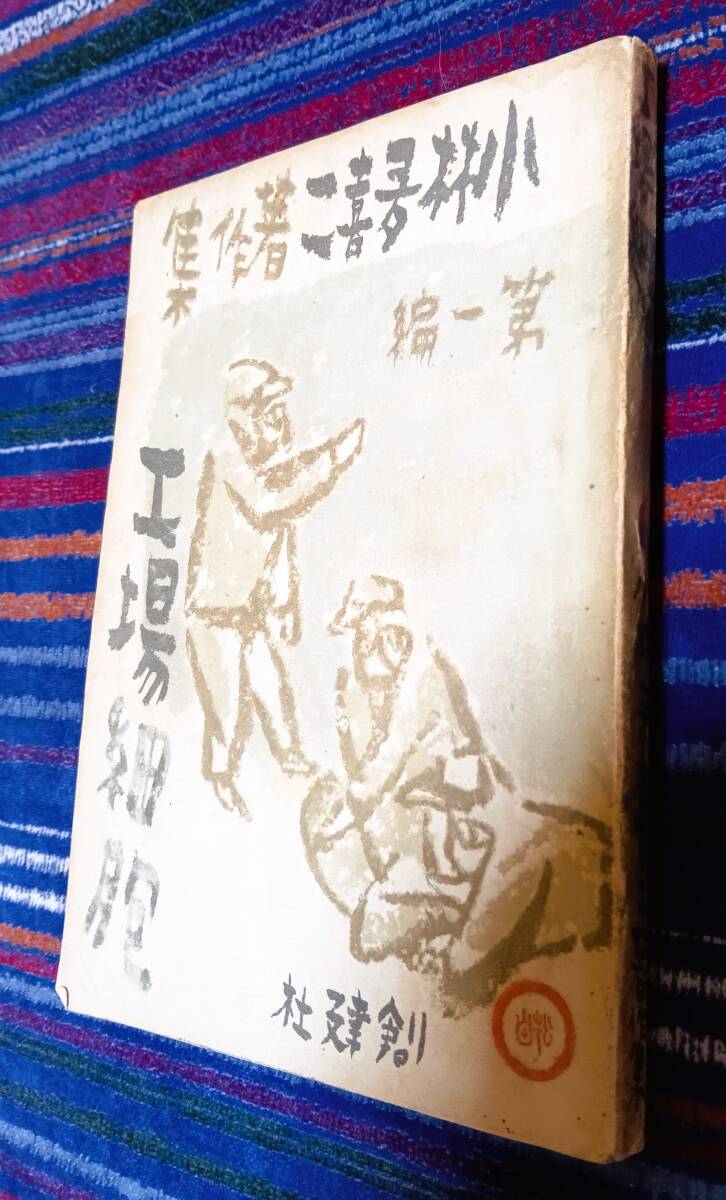 小林多喜二著作集
第一編
工場細胞
創建社